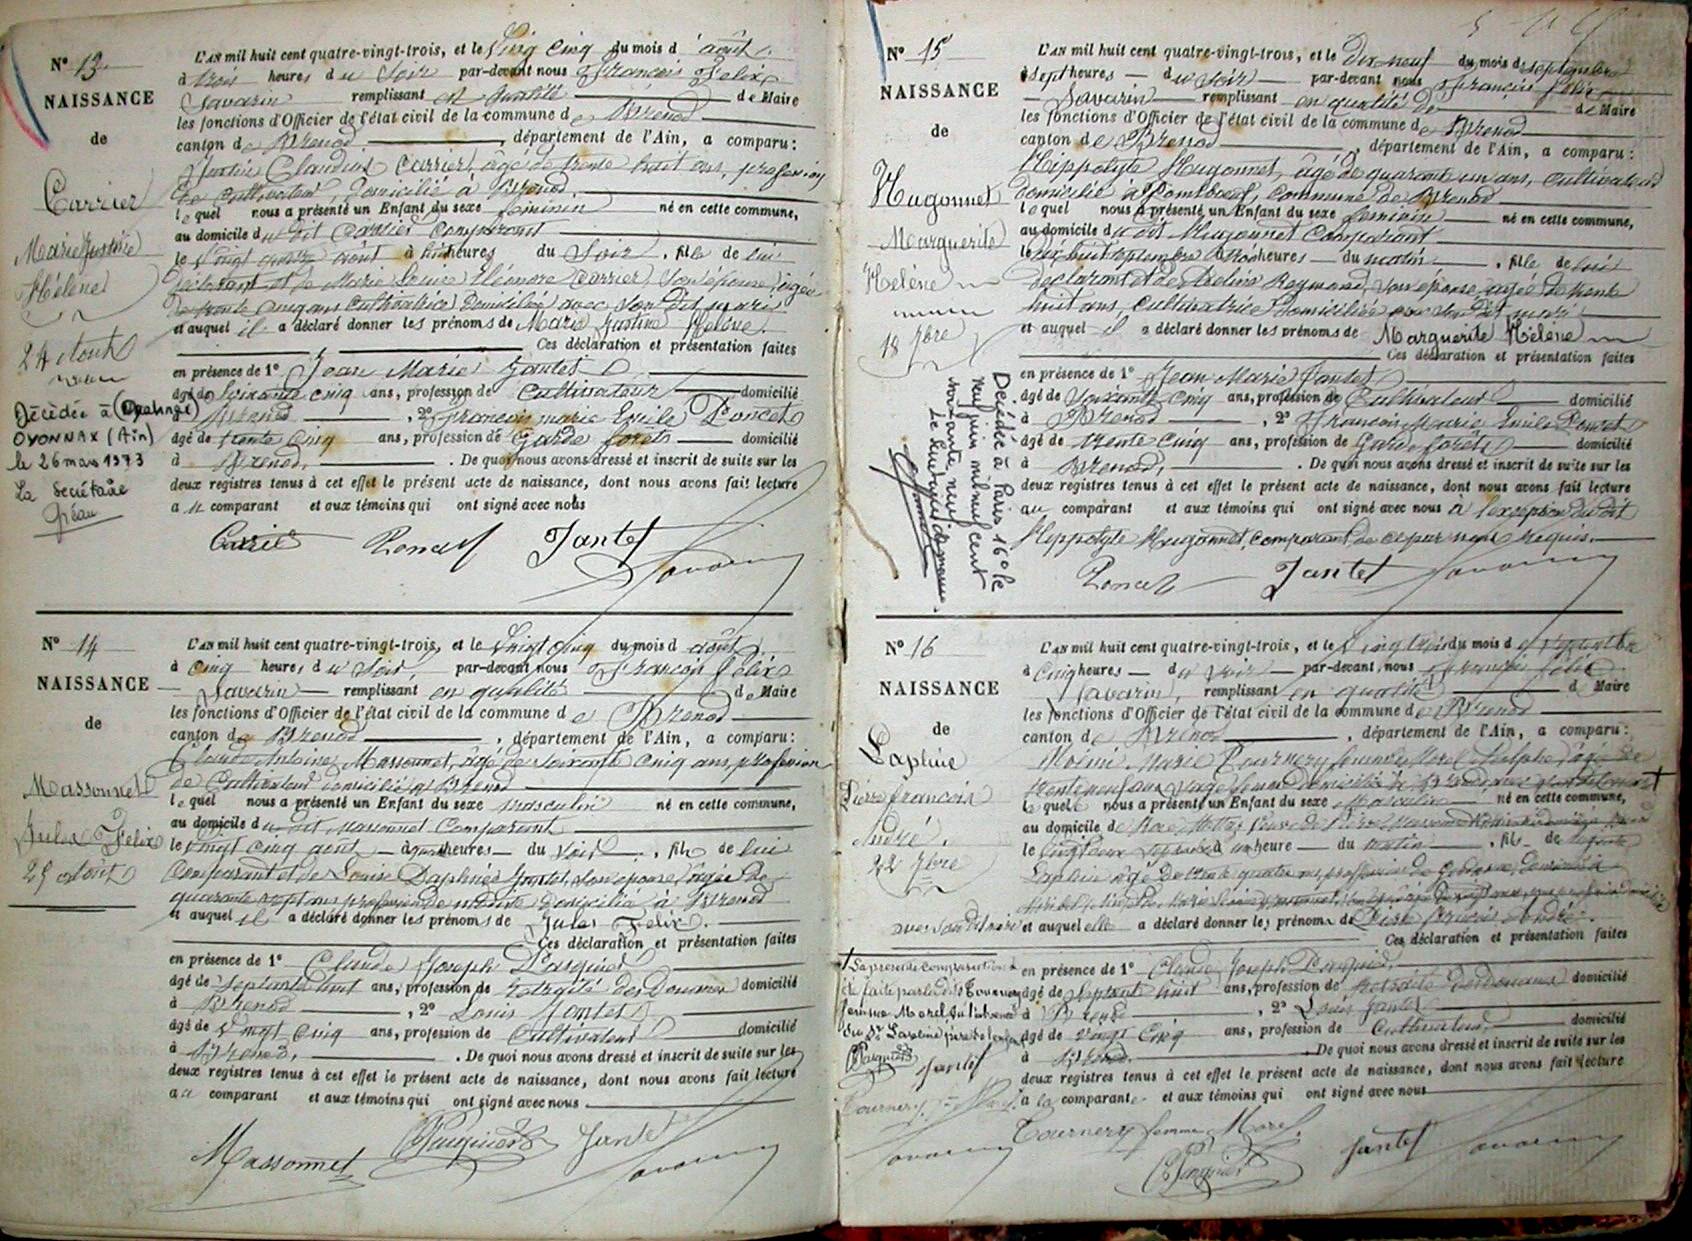 N° 13
NAISSANCE
de
Carrier
Marie Justine
Hélène
24 Août
Décédée à
OYONNAX (Ain)
le 26 mars 1973
La Secrétaire
L'AN mil huit cent quatre-vingt-trois, et le Vingt cinq du mois d'août
à trois heures du Soir par-devant nous François Félix
Savarin remplissant en qualité de Maire
les fonctions d'Officier de l'état civil de la commune de Brenod
canton de Brenod, département de l'Ain, a comparu :
Claudius Carrier, âgé de trente huit ans, profession
de Cultivateur, domicilié à Brenod.
lequel nous a présenté un Enfant du sexe féminin né en cette commune,
au domicile du dit Carrier Comparant
le Vingt quatre août à huit heures du Soir, fille de lui
déclarant et de Marie Louise Eléonore Carrier, son épouse, âgée
de trente cinq ans Cultivatrice, Domiciliée avec son dit mari
et auquel il a déclaré donner les prénoms de Marie Justine Hélène.
Ces déclaration et présentation faites
en présence de 1° Jean Marie Jantet
âgé de Soixante cinq ans, profession de Cultivateur domicilié
à Brenod, 2° François Marie Emile Poncet
âgé de trente cinq ans, profession de Garde forêts domicilié
à Brenod. De quoi nous avons dressé et inscrit de suite sur les
deux registres tenus à cet effet le présent acte de naissance, dont nous avons fait lecture
au comparant et aux témoins qui ont signé avec nous
Carrier Poncet Jantet Savarin
N° 14
NAISSANCE
de
Massonnet
Jules Félix
25 août
L'AN mil huit cent quatre-vingt-trois, et le Vingt cinq du mois d'août
à cinq heures du Soir, par-devant nous François Félix
Savarin remplissant en qualité de Maire
les fonctions d'Officier de l'état civil de la commune de Brenod
canton de Brenod, département de l'Ain, a comparu :
Claude Antoine Massonnet, âgé de soixante cinq ans, profession
de Cultivateur domicilié à Brenod
lequel nous a présenté un Enfant du sexe masculin né en cette commune,
au domicile du dit Massonnet Comparant
le vingt cinq août à quatre heures du soir, fils de lui
Comparant et de Louise Daphnée Jantet, son épouse, âgée de
quarante sept ans, profession de domicilié à Brenod
et auquel il a déclaré donner les prénoms de Jules Félix.
Ces déclaration et présentation faites
en présence de 1° Claude Joseph Pasquier
âgé de Septante huit ans, profession de retraité des Douanes domicilié
à Brenod, 2° Louis Jantet
âgé de Vingt Cinq ans, profession de Cultivateur domicilié
à Brenod. De quoi nous avons dressé et inscrit de suite sur les
deux registres tenus à cet effet le présent acte de naissance, dont nous avons fait lecture
au comparant et aux témoins qui ont signé avec nous
Massonnet Pasquier Jantet Savarin
N° 15
NAISSANCE
de
Hugonnet
Marguerite
Hélène
18 7bre
Décédée à Paris 16e le
neuf juin mil neuf cent
soixante neuf
L'AN mil huit cent quatre-vingt-trois, et le Dix neuf du mois de septembre
à sept heures du soir par-devant nous François Félix
Savarin remplissant en qualité de Maire
les fonctions d'Officier de l'état civil de la commune de Brenod
canton de Brenod, département de l'Ain, a comparu :
Hippolyte Hugonnet, âgé de quarante un ans, cultivateur
domicilié à commune de Brenod
lequel nous a présenté un Enfant du sexe féminin né en cette commune,
au domicile du dit Hugonnet Comparant
le Dix huit septembre à trois heures du matin, fille de lui
déclarant et de Reymond, son épouse âgée de trente
huit ans, cultivatrice domiciliée avec son dit mari
et auquel il a déclaré donner les prénoms de Marguerite Hélène
Ces déclaration et présentation faites
en présence de 1° Jean Marie Jantet
âgé de Soixante Cinq ans, profession de Cultivateur domicilié
à Brenod, 2° François Marie Emile Poncet
âgé de trente cinq ans, profession de Garde forêts domicilié
à Brenod, De quoi nous avons dressé et inscrit de suite sur les
deux registres tenus à cet effet le présent acte de naissance, dont nous avons fait lecture
au comparant et aux témoins qui ont signé avec nous à l'exception du dit
Hippolyte Hugonnet, comparant, de ce par nous requis.
Poncet Jantet Savarin
N° 16
NAISSANCE
de
Laphine
Pierre François
André.
22 7bre
L'AN mil huit cent quatre-vingt-trois, et le Vingt trois du mois de septembre
à Cinq heures du soir par-devant nous François Félix
Savarin, remplissant en qualité de Maire
les fonctions d'Officier de l'état civil de la commune de Brenod
canton de Brenod, département de l'Ain, a comparu :
Marie Tournery femme Morel âgée de
trente neuf ans sage femme domiciliée à Brenod
lequel nous a présenté un Enfant du sexe Masculin né en cette commune,
au domicile de
le vingt deux septembre à une heure du matin, fils de
Laphine âgé de trente quatre ans, profession de
et auquel elle a déclaré donner les prénoms de Pierre François André.
Ces déclaration et présentation faites
en présence de 1° Claude Joseph Pasquier,
âgé de Septante huit ans, profession de Retraité des Douanes domicilié
à Brenod, 2° Louis Jantet
âgé de Vingt Cinq ans, profession de Cultivateur, domicilié
à Brenod. De quoi nous avons dressé et inscrit de suite sur les
deux registres tenus à cet effet le présent acte de naissance, dont nous avons fait lecture
à la comparante et aux témoins qui ont signé avec nous
avec son dit mari
La présente comparution
faite par la dite Tournery
femme Morel
du Sr Laphine père de l'enfant
Pasquier Jantet
Tournery f. Morel
Savarin
Tournery femme Morel.
Pasquier Jantet Savarin